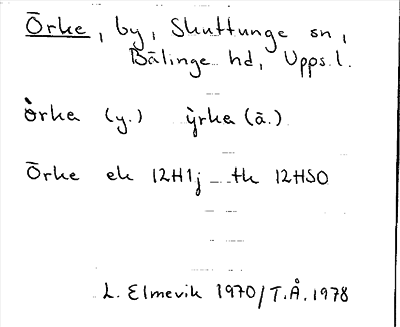 Örke, by, Skuttunge sn,
Bälinge hd, Upps.l.
òrka (y.) ỳrka (ä.)
Örke ek 12H1j tk 12HSO
L. Elmevik 1970/T.Å.1978